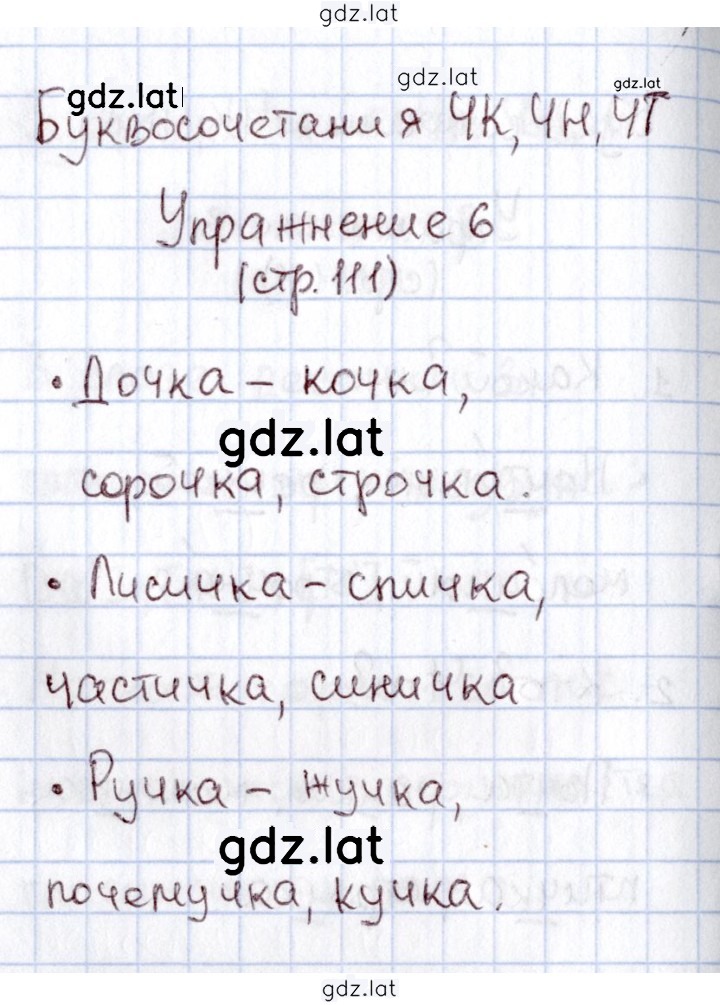 gdz.lat
gdz.lat
gdz.lat
gdz.lat
Буквосочетания ЧК, ЧН, ЧТ
Упражнение 6
(стр. 111)
• Дочка – кочка,
gdz.lat
сорочка, строчка.
• Лисичка – спичка,
частичка, синичка
• Ручка – жучка,
gdz.lat
почемучка, кучка.
gdz.lat